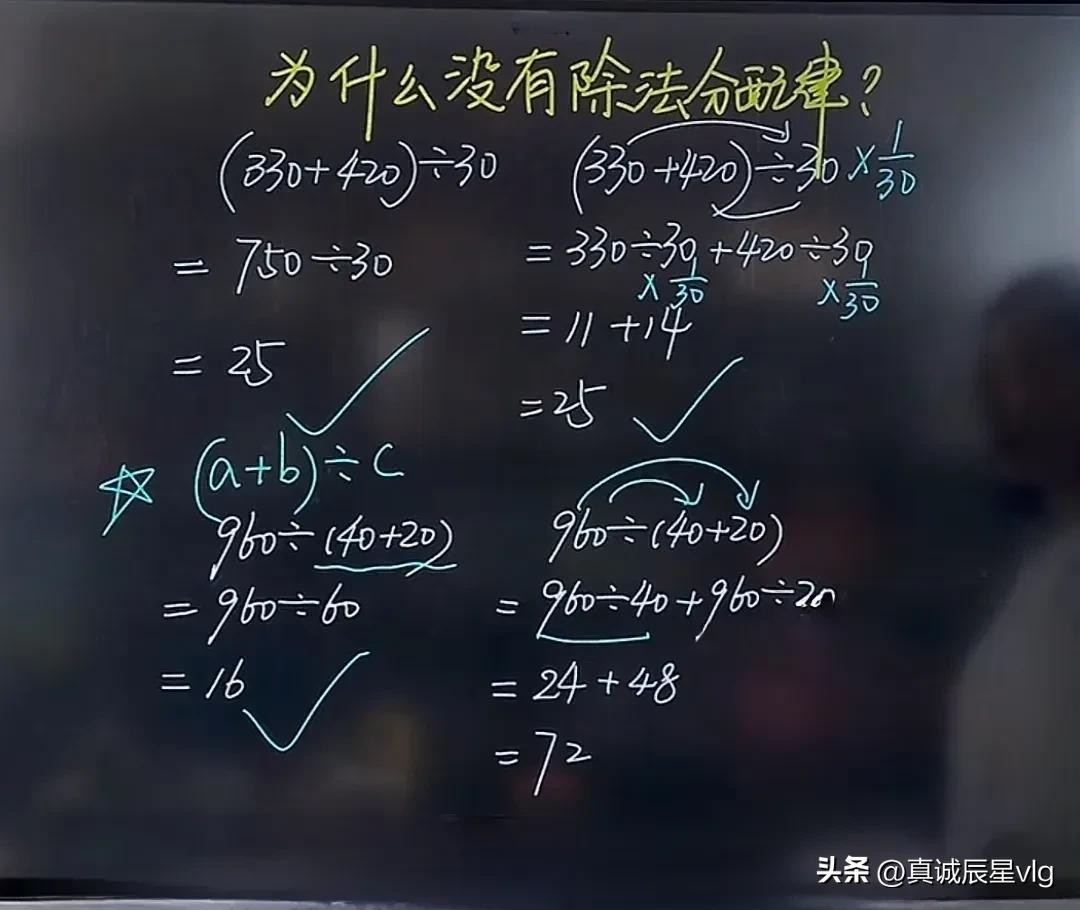 为什么没有除法分配律?
(330+420)÷30
= 750÷30
= 25
(330+420)÷30 ×1/30
= 330÷30+420÷30
×1/30 ×1/30
= 11+14
= 25
☆ (a+b)÷c
960÷(40+20)
= 960÷60
= 16
960÷(40+20)
= 960÷40+960÷20
= 24+48
= 72
头条 @真诚辰星vlg